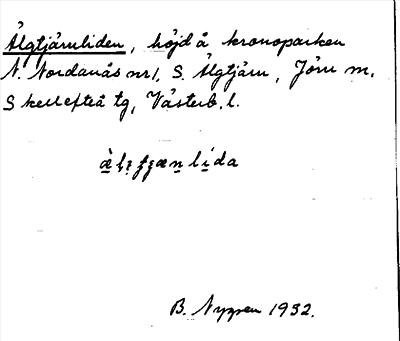 Älgtjärnliden, höjd å kronoparken
N. Nordanås nr 1, S. Älgtjärn, Jörn sn,
Skellefteå tg, Västerb. l.
B. Nygren 1932.